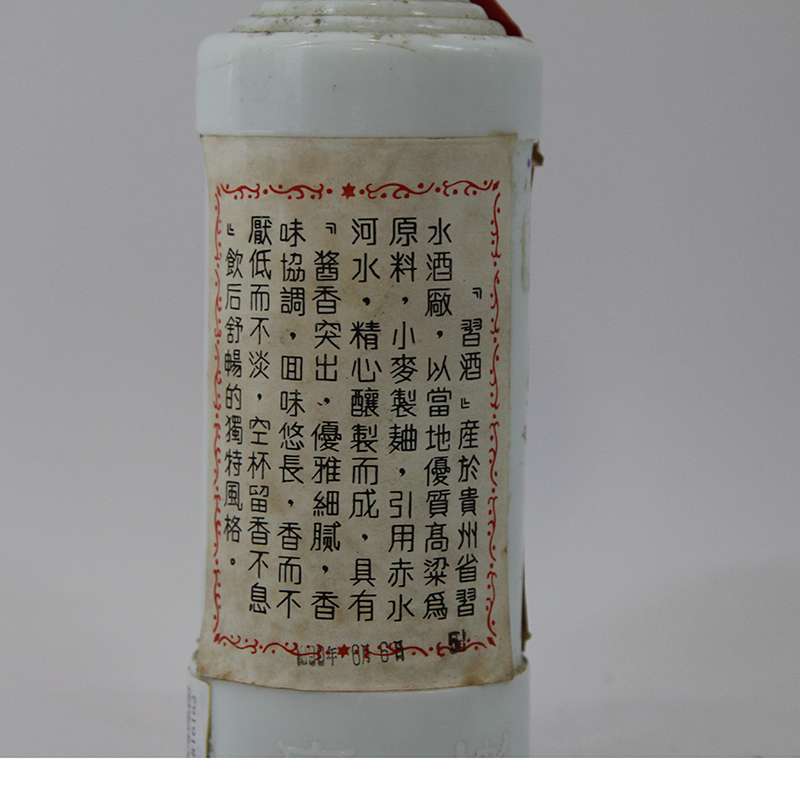 『習酒』産於貴州省習
水酒廠，以當地優質高粱爲
原料，小麥製麯，引用赤水
河水，精心釀製而成，具有
『醬香突出、優雅細膩，香
味協調，囬味悠長，香而不
厭低而不淡，空杯留香不息
』飲后舒暢的獨特風格。
年 月 日